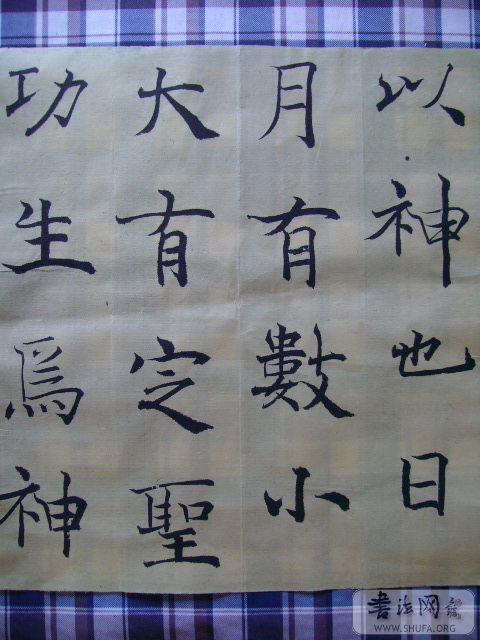 以神也日
月有數小
大有定聖
功生爲神
書法网
WWW.SHUFA.ORG